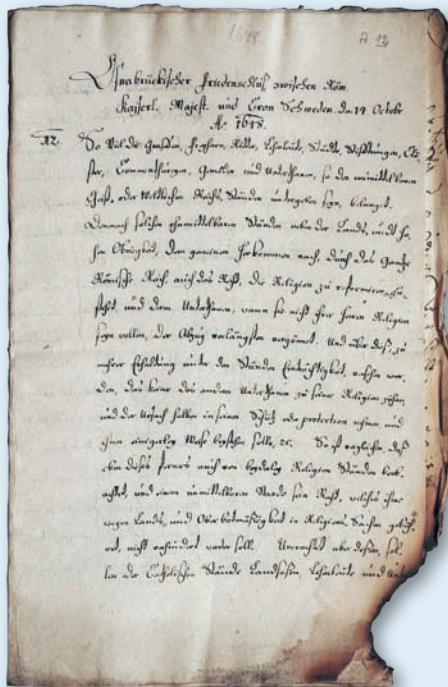 1648
A 12
Osnabrückischer Friedensschluß zwischen Röm.
Kayserl. Majest. und Cron Schweden. Da. 14 Octobr
Ao. 1648.
12. So Vil die Graffen, Freyherrn, Ritter, Lehnleute, Städte, Stifftungen, Clö-
ster, Commenthureyen, Gemeinden und Unterthanen, so den unmittelbaren
Geist- oder Weltlichen Reichs Ständen untergeben seyn, belanget.
Demnach solchen ohnmittelbaren Ständen neben der Lands- und ho-
hen Obrigkeit, dem gemeinen herkommen nach, durch das Gantze
Römische Reich auch das Recht, die Religion zu reformiren, zu-
stehet, und dem Unterthanen, wann sie nicht ihrer Herrn Religion
seyn wollen, der Abzug vorlängsten vergönnet. Und über diß, zu
mehrer Erhaltung unter den Ständen Einträchtigkeit, versehen wor-
den, daß keiner des andern Unterthanen zu seiner Religion ziehen,
und der Ursach halben in seinen Schutz oder protection nehmen, und
ihnen einigerley Weise beystehen solle, etc. So ist verglichen, daß
eben dieses ferners auch von beyderley Religion Ständen beob-
achtet, und einem unmittelbaren Stande sein Recht, welches ihme
wegen Lands, und Oberbotmäßigkeit in Religions Sachen gebüh-
ret, nicht verhindert werden soll. Unerachtet aber dessen, sol-
len der Catholischen Stände Landsessen, Lehnleute und